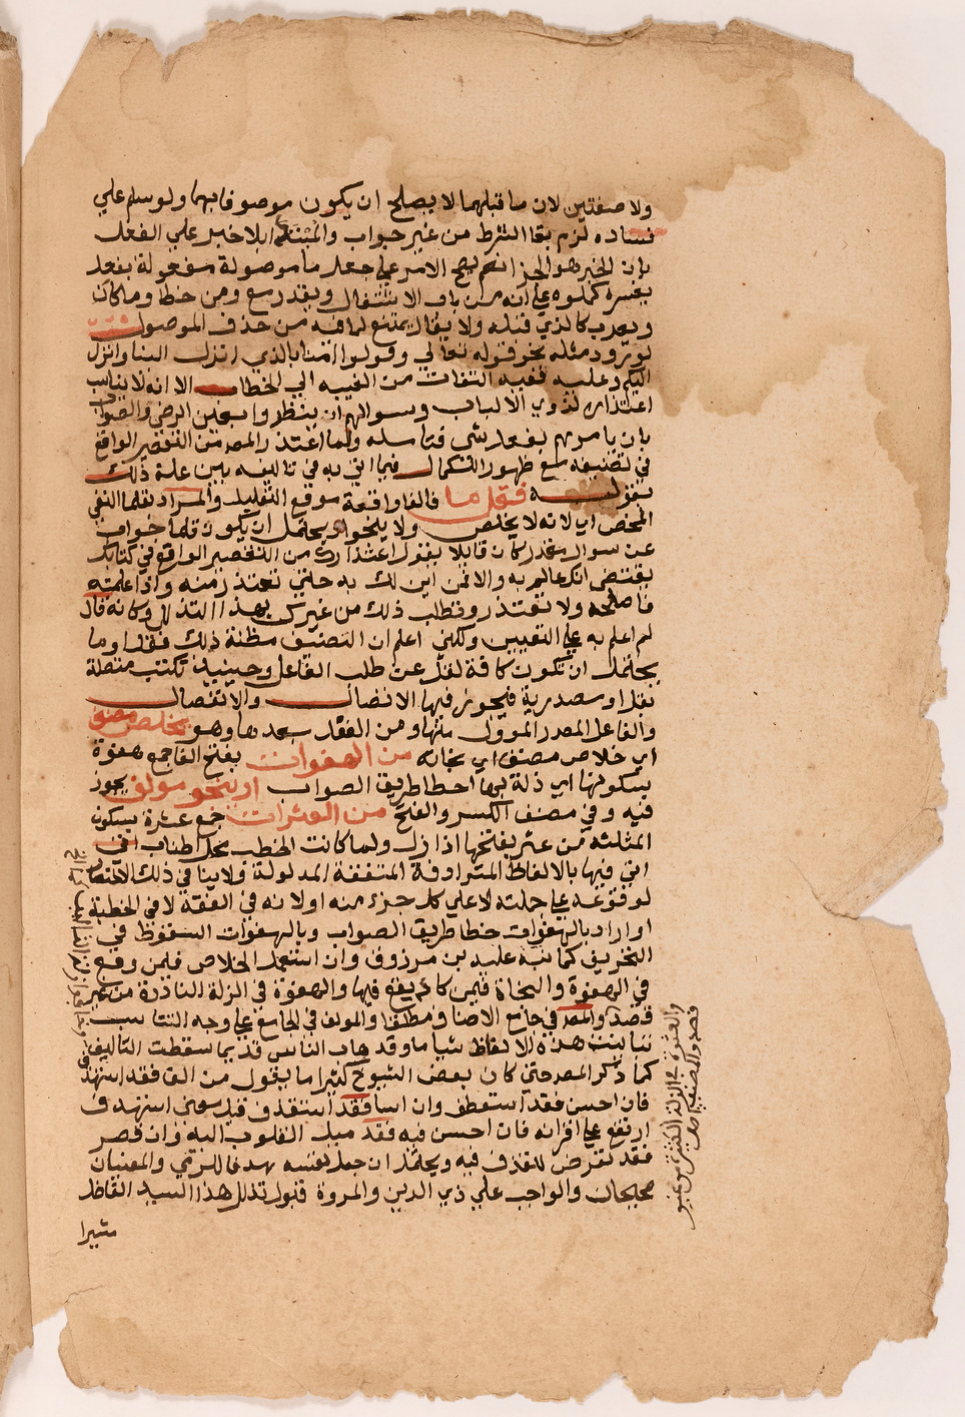 ولا صفتين لان ما قبلهما لا يصلح ان يكون موصوفا بهما ولو سلم علي
فساده لزم بقا الشرط من غير جواب والمبتدا بلا خبر علي الفعل
بان الخبر هو الجزا نعم يصح الامر علي جعل ما موصولة مفعولة بفعل
يفسره كملوه علي انه من باب الاشتغال ويقدر مع ومن خطا وما كان
ويعرب كالذي قبله ولا يقال يمتنع لما فيه من حذف الموصول
لورود مثله نحو قوله تعالي وقولوا امنا بالذي انزل الينا وانزل
اليكم وعليه ففيه التفات من الغيبه الي الخطاب الا انه لا يناسب
اعتذاره لذوي الالباب وسوالهم ان ينظروا بعين الرضي والصواب
بان يامرهم بفعل شي فتامله ولما اعتذر المص من التقصير الواقع
في تصنيفه مع ظهور الكمال فيما اتي به في تاليفه بين علة ذلك
بقوله فقل ما فالفا واقعة موقع التعليل والمراد بقلما النفي
المحض اي لانه لا يخلص ولا ينجو او يحتمل ان يكون قلما جواب
عن سوال مقدر كان قايلا يقول اعتذارك من التقصير الواقع في كتابك
يقتضي انك عالم به والا فمن اين لك به حتي تعتذر منه واذا علمته
فاصلحه ولا تعتذر وتطلب ذلك من غيرك بهذا التذلل وكانه قال
لم اعلم به علي التعيين ولكني اعلم ان التصنيف مظنة ذلك فقل وما
يحتمل ان تكون كافة لقل عن طلب الفاعل وحينيذ تكتب متصلة
بقل او مصدرية فيجوز فيها الاتصال والانفصال
والفاعل المصدر الموول منها ومن الفعل بعدها وهو يخلص مصنف
اي خلاص مصنف اي نجاته من الهفوات بفتح الفا جمع هفوة
بسكونها اي زلة بها اخطا طريق الصواب او ينجو مولف يجوز
فيه وفي مصنف الكسر والفتح من العثرات جمع عثرة بسكون
المثلثه من عثر بفتحها اذا زل ولما كانت الخطب محل اطناب
اتي فيها بالالفاظ المترادفة المتفقة المدلولة ولا ينافي ذلك الاختصار
لوقوعه علي جملته لا علي كل جزء منه او لانه في الفقه لا في الخطبة
او اراد بالهفوات خطا طريق الصواب وبالهفوات السقوط في
التحريف كما نبه عليه بن مرزوق وان استعمل الخلاص فيمن وقع
في الهفوة والنجاة فيمن كاد يقع فيها والهفوة في الزلة النادرة من غير
قصد والمص في جامع الاصناف مطلقا والمولف في الجامع علي وجه التناسب
تباينت هذه الالفاظ شيا ما وقد هاب الناس قديما سقطت التاليف
كما ذكر المص حتي كان بعض الشيوخ كثيرا ما يقول من الف فقد استهدف
فان احسن فقد استعطف وان اسا فقد استقذف قيل معني استهدف
ارتفع علي اقرانه فان احسن فيه فقد ميل القلوب اليه وان قصر
فقد تعرض للقذف فيه ويحتمل ان جعل نفسه هدفا للرمي والمعنيان
صحيحان والواجب علي ذي الدين والمروة قبول تذلل هذا السيد الفاضل
مشيرا
والعثرة في الزلة الكثيرة من غير
قصد والمصنف